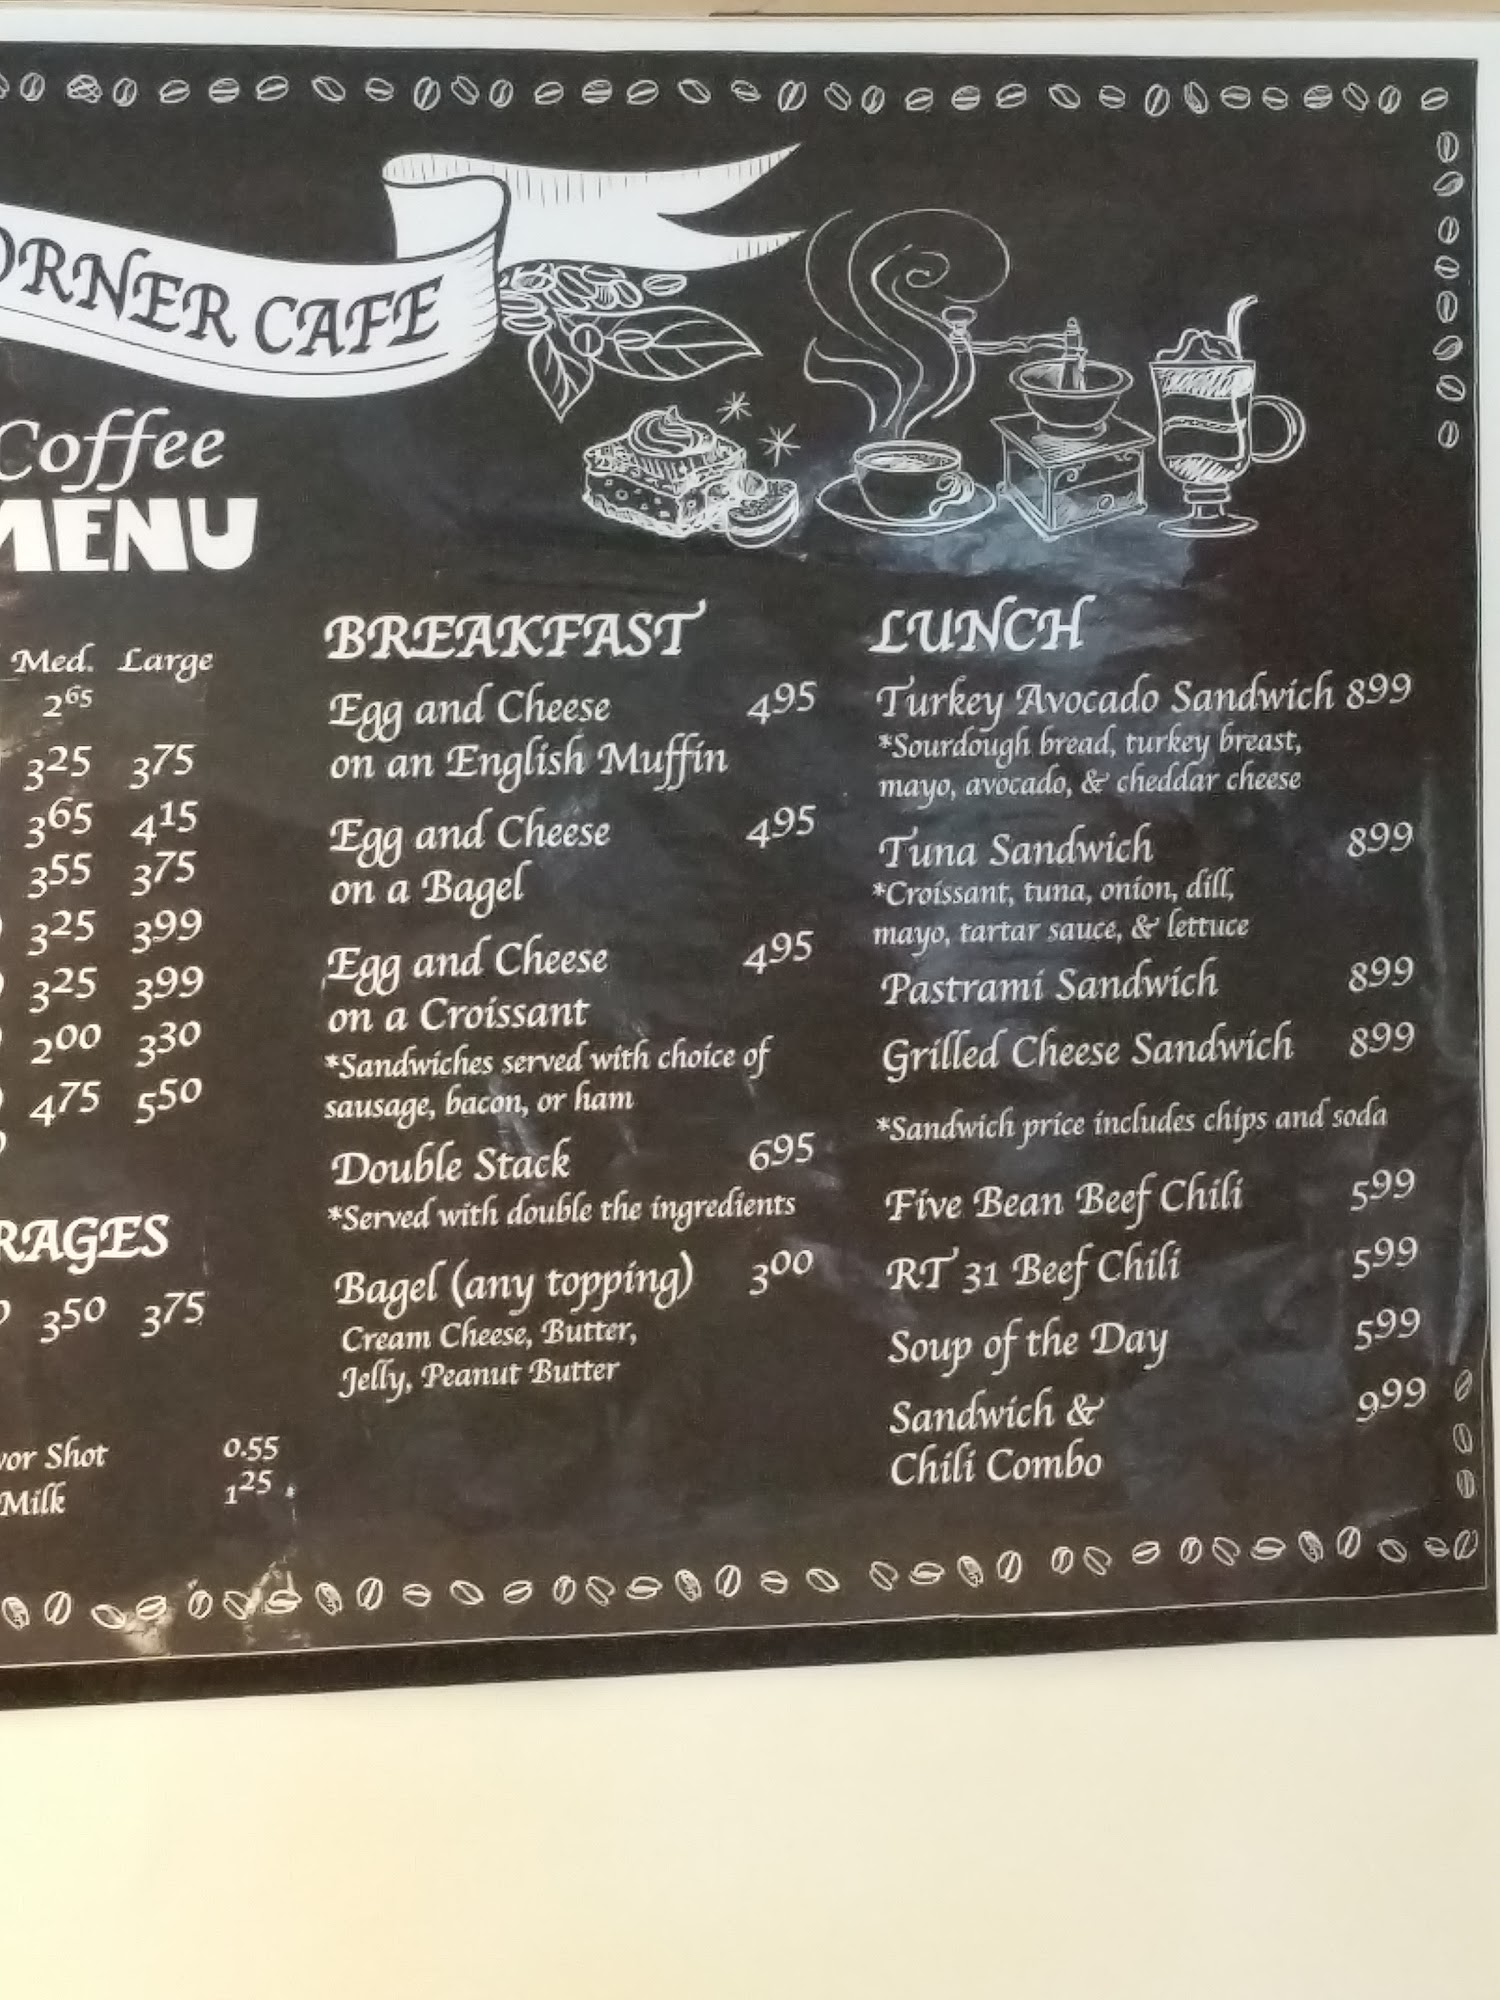 CAFE
Coffee
MENU
Med. Large
2⁶⁵
3²⁵ 3⁷⁵
3⁶⁵ 4¹⁵
3⁵⁵ 3⁷⁵
3²⁵ 3⁹⁹
3²⁵ 3⁹⁹
2⁰⁰ 3³⁰
4⁷⁵ 5⁵⁰
3⁵⁰ 3⁷⁵
Shot 0.55
Milk 1²⁵
BREAKFAST
Egg and Cheese 4⁹⁵
on an English Muffin
Egg and Cheese 4⁹⁵
on a Bagel
Egg and Cheese 4⁹⁵
on a Croissant
*Sandwiches served with choice of
sausage, bacon, or ham
Double Stack 6⁹⁵
*Served with double the ingredients
Bagel (any topping) 3⁰⁰
Cream Cheese, Butter,
Jelly, Peanut Butter
LUNCH
Turkey Avocado Sandwich 8⁹⁹
*Sourdough bread, turkey breast,
mayo, avocado, & cheddar cheese
Tuna Sandwich 8⁹⁹
*Croissant, tuna, onion, dill,
mayo, tartar sauce, & lettuce
Pastrami Sandwich 8⁹⁹
Grilled Cheese Sandwich 8⁹⁹
*Sandwich price includes chips and soda
Five Bean Beef Chili 5⁹⁹
RT 31 Beef Chili 5⁹⁹
Soup of the Day 5⁹⁹
Sandwich & 9⁹⁹
Chili Combo